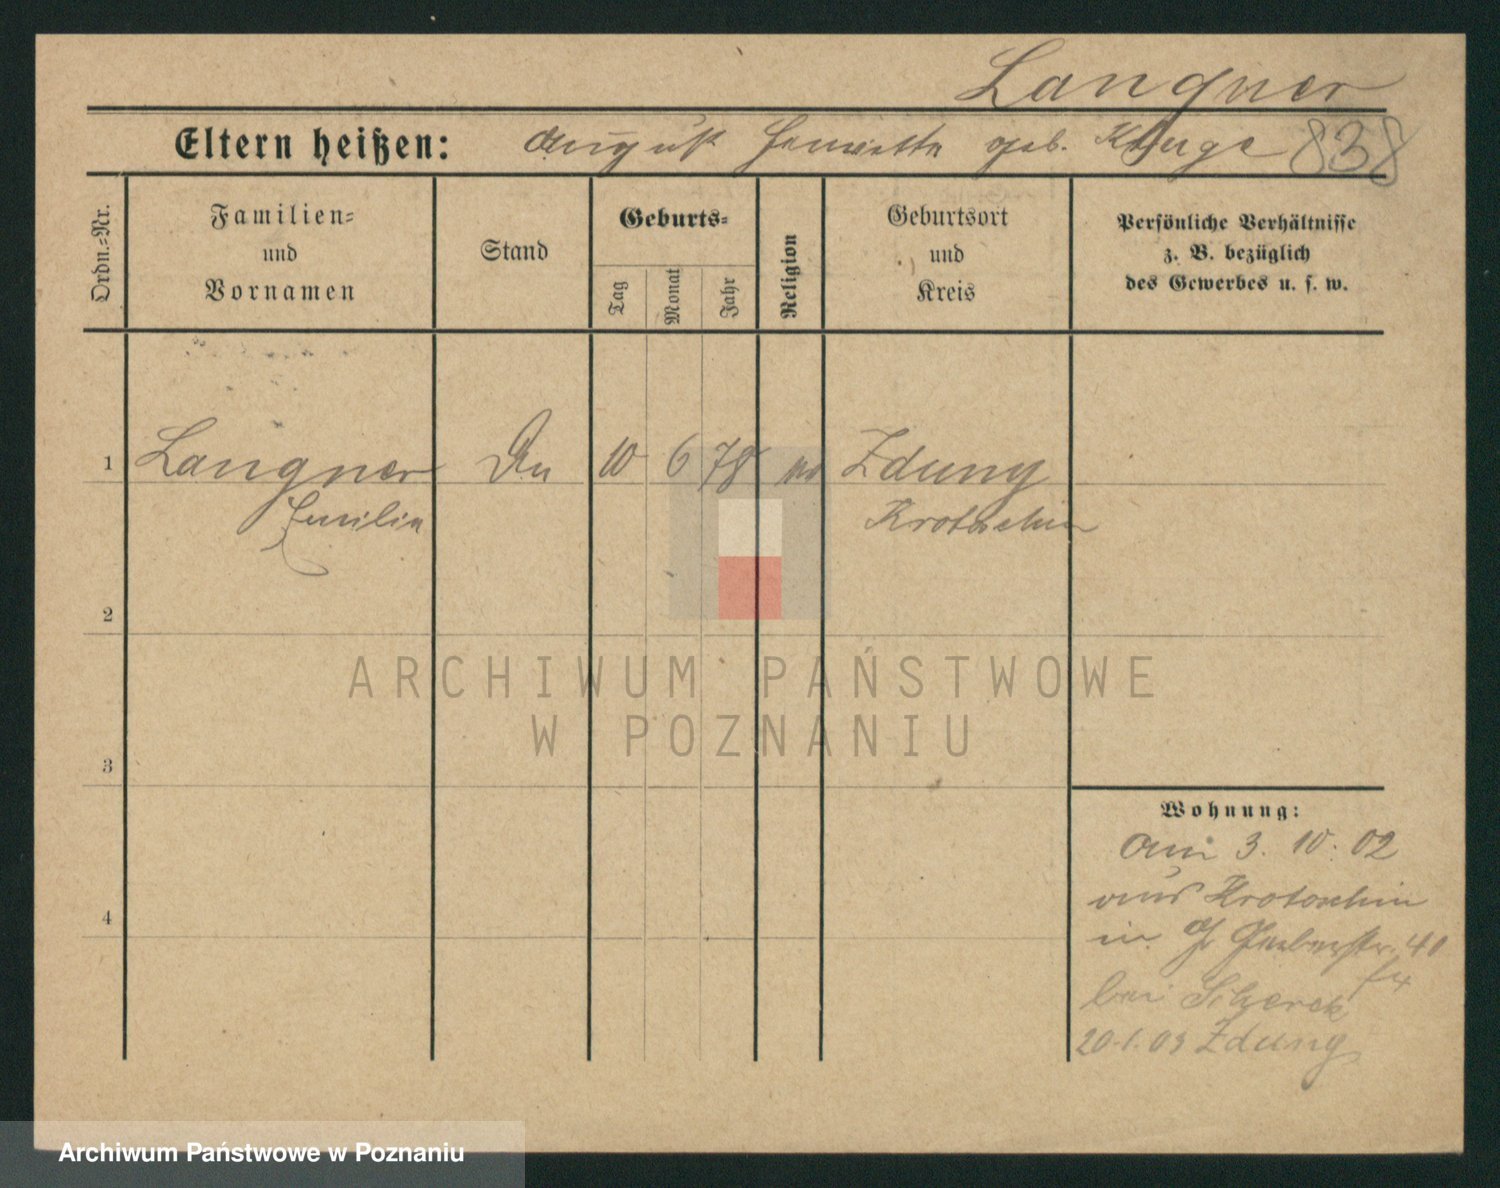 Langner
Eltern heißen: August Henriette geb. Kluge 838
Ordn.=Nr.
Familien=
und
Vornamen
Stand
Geburts=
Tag
Monat
Jahr
Religion
Geburtsort
und
Kreis
Persönliche Verhältnisse
z. B. bezüglich
des Gewerbes u. s. w.
1 Langner 10 6 78 Zduny
Emilie Krotoschin
2
3
4
ARCHIWUM PAŃSTWOWE
W POZNANIU
Wohnung:
Am 3. 10. 02
aus Krotoschin
in Gr Gerberstr. 40
bei
20.1.03 Zduny
Archiwum Państwowe w Poznaniu